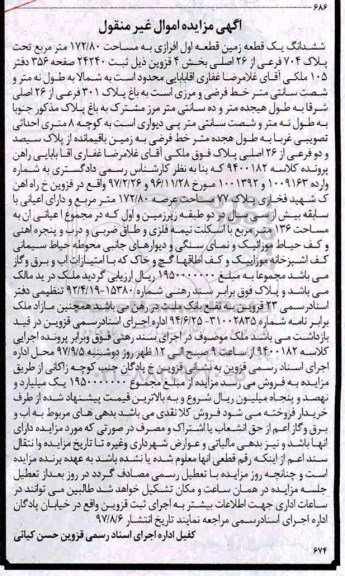 ۶۸۶
آگهی مزایده اموال غیر منقول
ششدانگ یک قطعه زمین قطعه اول افرازی به مساحت ۱۷۲/۸۰ متر مربع تحت
پلاک ۷۰۴ فرعی از ۲۶ اصلی بخش ۴ قزوین ذیل ثبت ۲۴۲۴۰ صفحه ۳۵۶ دفتر
۱۰۵ ملکی آقای غلامرضا غفاری اقابابایی محدود است به شمالا به طول نه متر و
شصت سانتی متر خط فرضی و مرزی است به باغ پلاک ۳۰۱ فرعی از ۲۶ اصلی
شرقا به طول هیجده متر و ده سانتی متر مرز مشترک به باغ پلاک مذکور جنوبا
به طول نه متر و شصت سانتی متر پی دیواری است به کوچه ۸ متری احداثی
تصویبی غربا به طول هجده متر خط فرضی به زمین باقیمانده از پلاک سیصد
و دو فرعی از ۲۶ اصلی پلاک فوق ملکی آقای غلامرضا غفاری آقابابایی راهن
پرونده کلاسه ۹۴۰۰۱۸۲ که بنا به نظر کارشناس رسمی دادگستری به شماره
وارده ۱۰۰۹۱۶۳ و ۱۰۰۱۳۹۲ مورخ ۹۶/۱۱/۲۸ و ۹۷/۲/۲۶ واقع در قزوین خ راه آهن
ک شهید فخاری پلاک ۷۴ مساحت عرصه ۱۷۲/۸۰ متر مربع و دارای اعیانی با
سابقه بیش از سی سال در دو طبقه زیرزمین و اول که در مجموع اعیانی آن به
مساحت ۱۳۶ متر مربع با اسکلت نیمه فلزی و طاق ضربی و درب و پنجره آهنی
و کف حیاط موزائیک و نمای سنگی و دیوارهای جانبی محوطه حیاط سیمانی
کف آشپزخانه موزاییک و کف اطاقها گچ و خاک که با امتیازات آب و برق و گاز
می باشد مجموعا به مبلغ ۱۹۵۰۰۰۰۰۰۰ ریال ارزیابی گردید ملک در ید مالک
می باشد و پلاک فوق برابر سند رهنی شماره ۱۵۳۸۰-۹۲/۴/۱۹ تنظیمی دفتر
اسنادرسمی ۲۳ قزوین به نفع بانک ملت در رهن می باشد همچنین مازاد ملک
برابر نامه شماره ۳۱۰۰۲۸۳۵-۹۴/۶/۲۵ اداره اجرای اسنادرسمی قزوین در قید
بازداشت می باشد ملک موصوف در اجرای سند رهنی فوق وبرابر پرونده اجرایی
کلاسه ۹۴۰۰۱۸۲ از ساعت ۹ صبح الی ۱۲ ظهر روز دوشنبه ۹۷/۹/۵ محل اداره
اجرای اسناد رسمی قزوین به نشانی قزوین خ پادگان جنب کوچه زاکانی از طریق
مزایده به فروش می رسد مزایده از مبلغ مجموع ۱۹۵۰۰۰۰۰۰۰ یک میلیارد و
نهصد و پنجاه میلیون ریال شروع و به بالاترین قیمت پیشنهاد شده از طرف
خریدار فروخته می شود فروش کلا نقدی می باشد بدهی های مربوط به آب و
برق و گاز اعم از حق انشعاب یا اشتراک و مصرف در صورتی که مورد مزایده دارای
آنها باشد و نیز بدهی مالیاتی و عوارض شهرداری وغیره تا تاریخ مزایده و انتقال
سند اعم از اینکه رقم قطعی آنها معلوم شده یا نشده باشد به عهده برنده مزایده
است و چنانچه روز مزایده با تعطیل رسمی مصادف گردد در روز بعداز تعطیل
جلسه مزایده در همان ساعت و مکان تشکیل خواهد شد طالبین می توانند در
ساعات اداری جهت اطلاعات بیشتر به اجرای ثبت قزوین واقع در خیابان پادگان
اداره اجرای اسنادرسمی مراجعه نمایند تاریخ انتشار ۹۷/۸/۶
کفیل اداره اجرای اسناد رسمی قزوین حسن کیائی
۶۷۴